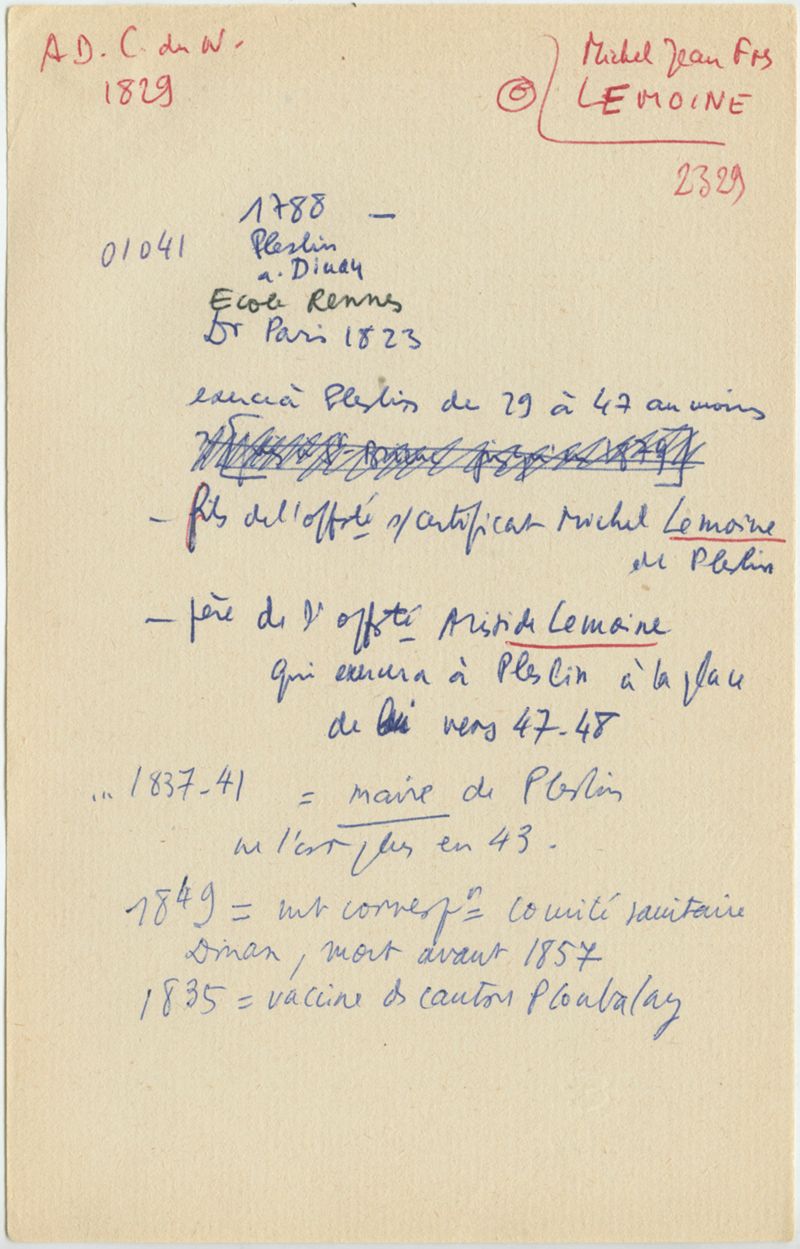 A D. C. du N.
1829
Michel Jean Frs
LEMOINE
2329
1788 —
01041
Pleslin
a. Dinan
Ecole Rennes
Dr Paris 1823
exerce à Pleslin de 29 à 47 au moins
— fils de l'offsté s/certificat Michel Lemoine
de Pleslin
— père de l'offsté Aristide Lemoine
qui exercera à Pleslin à la place
de lui vers 47-48
... 1837-41 = maire de Pleslin
ne l'est plus en 43.
1849 = mt corresp<sup>n</sup>= Comité sanitaire
Dinan, mort avant 1857
1835 = vaccine ds cantons Ploubalay